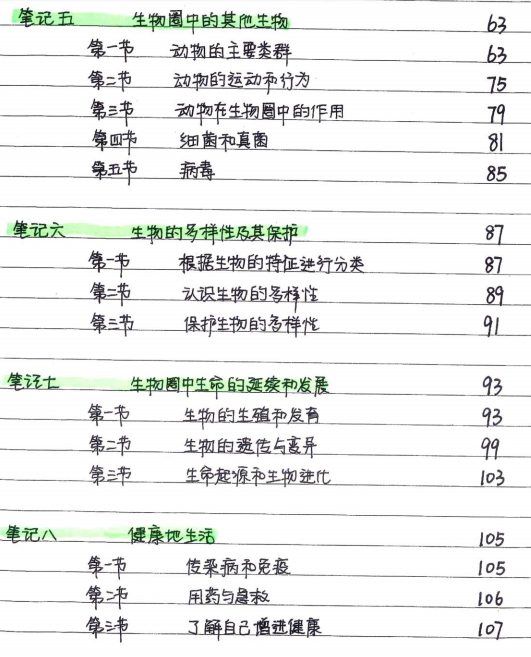 笔记五 生物圈中的其他生物 63
第一节 动物的主要类群 63
第二节 动物的运动和行为 75
第三节 动物在生物圈中的作用 79
第四节 细菌和真菌 81
第五节 病毒 85
笔记六 生物的多样性及其保护 87
第一节 根据生物的特征进行分类 87
第二节 认识生物的多样性 89
第三节 保护生物的多样性 91
笔记七 生物圈中生命的延续和发展 93
第一节 生物的生殖和发育 93
第二节 生物的遗传与变异 99
第三节 生命起源和生物进化 103
笔记八 健康地生活 105
第一节 传染病和免疫 105
第二节 用药与急救 106
第三节 了解自己增进健康 107